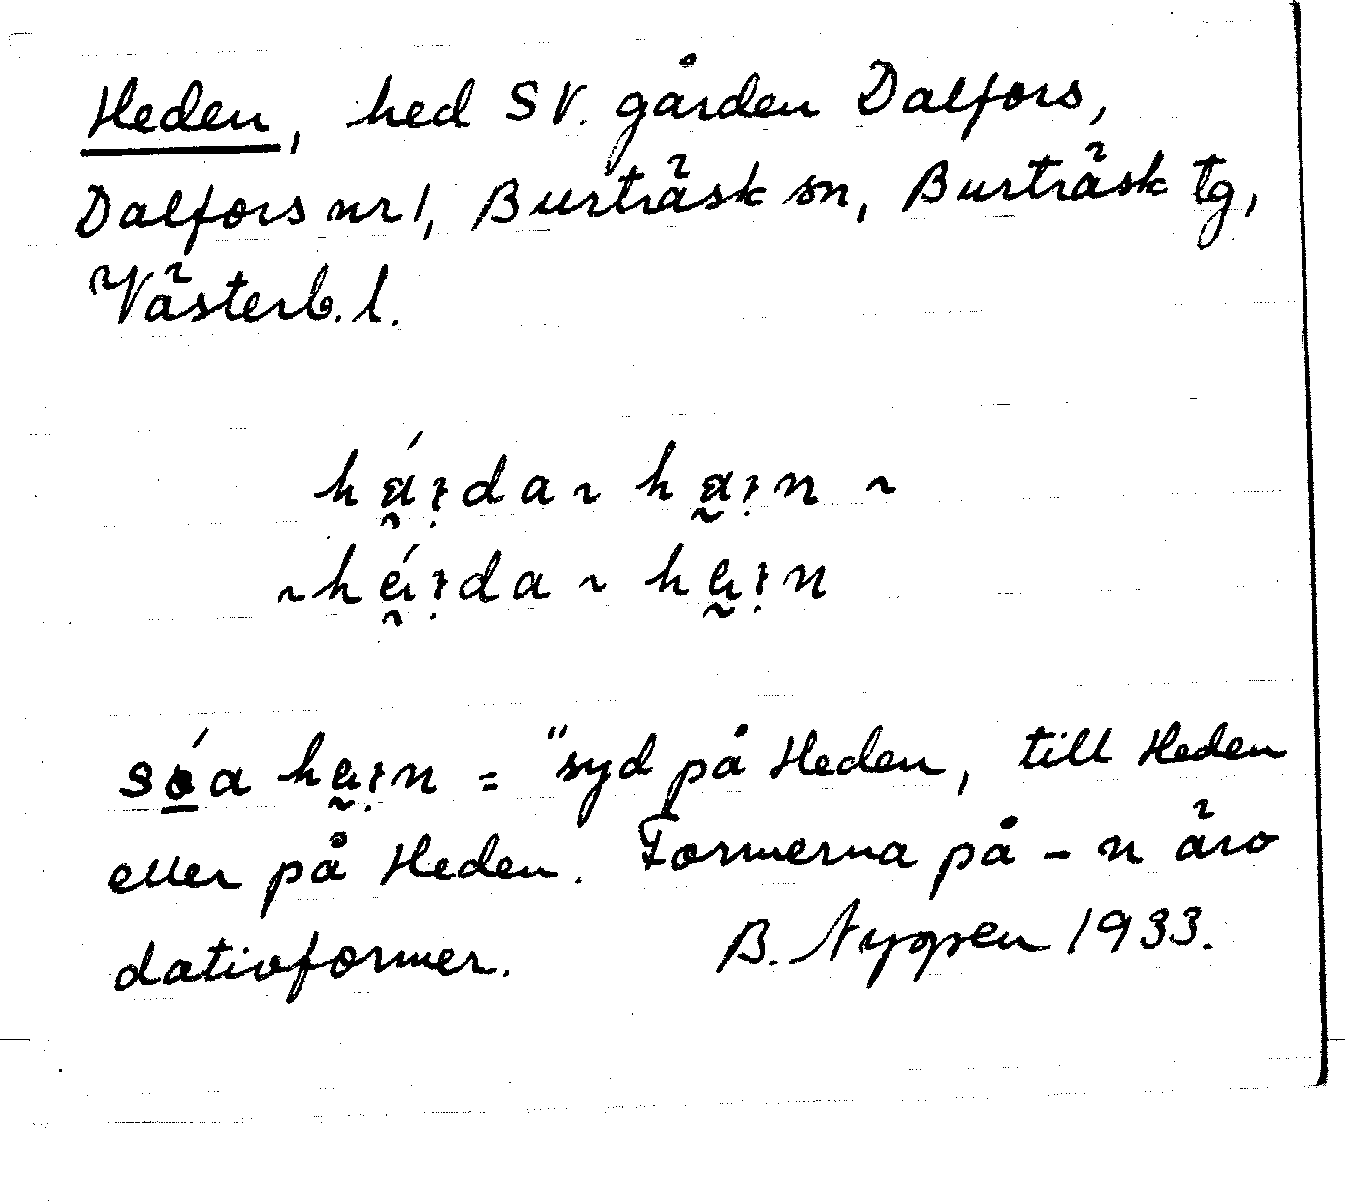 Heden, hed SV. gården Dalfors,
Dalfors nr 1, Burträsk sn, Burträsk tg,
Västerb. l.
há̰ı̣da ~ ha̰ı̣n ~
~ hḛ́ı̣da ~ hḛı̣n
só̱a hḛı̣n = "syd på Heden, till Heden
eller på Heden. Formerna på - n äro
dativformer. B. Nygren 1933.